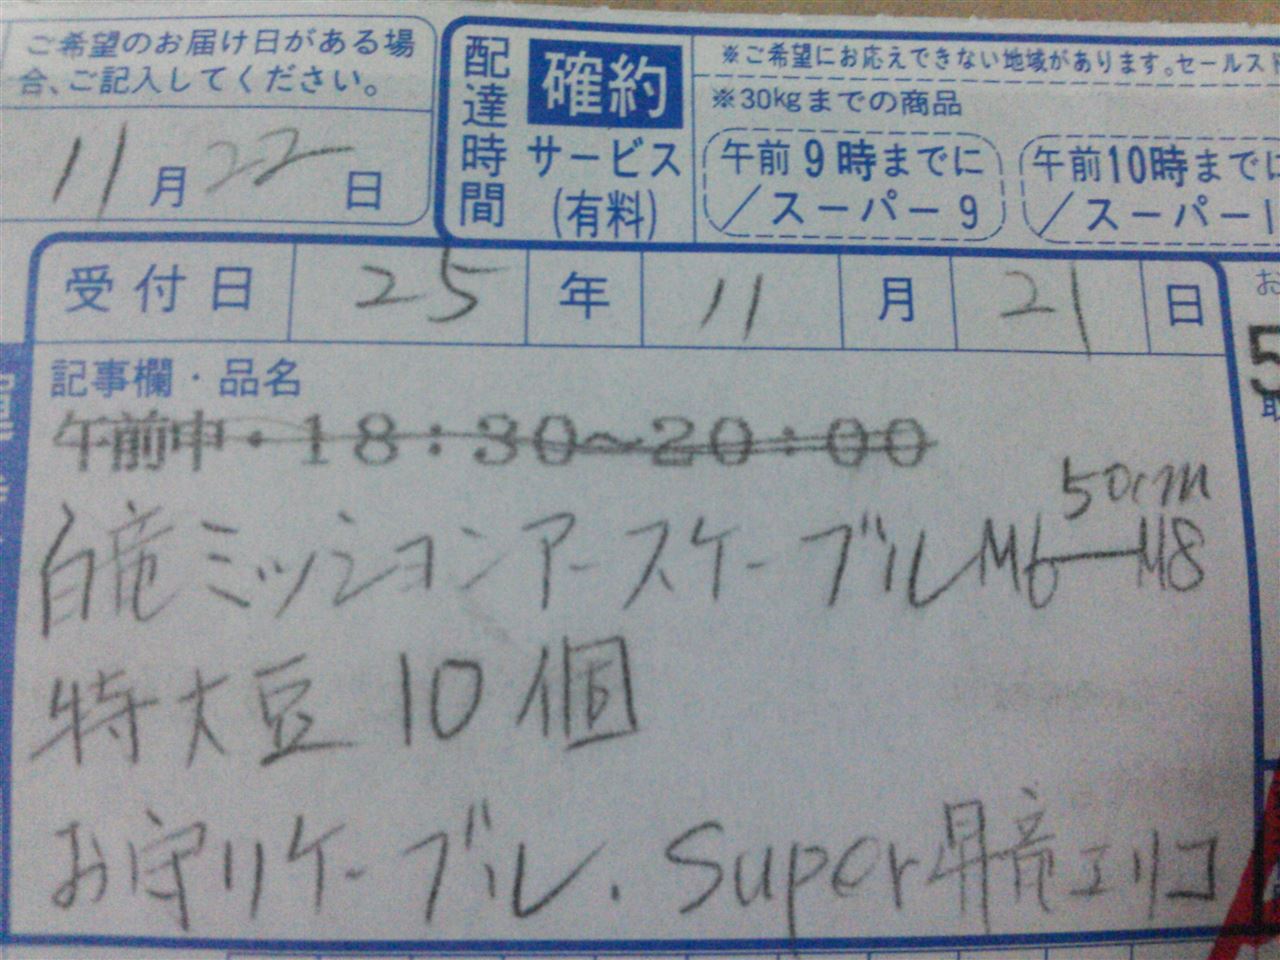 ご希望のお届け日がある場
合、ご記入してください。
11月22日
配達時間
確約
サービス
(有料)
※ご希望にお応えできない地域があります。セールスド
※30kgまでの商品
午前9時までに
/スーパー9
午前10時までに
/スーパー1
受付日 25年11月21日
記事欄・品名
午前中・18:30~20:00
50cm
白竜ミッションアースケーブルM6—M8
特大豆10個
お守りケーブル.Super昇竜エリコ